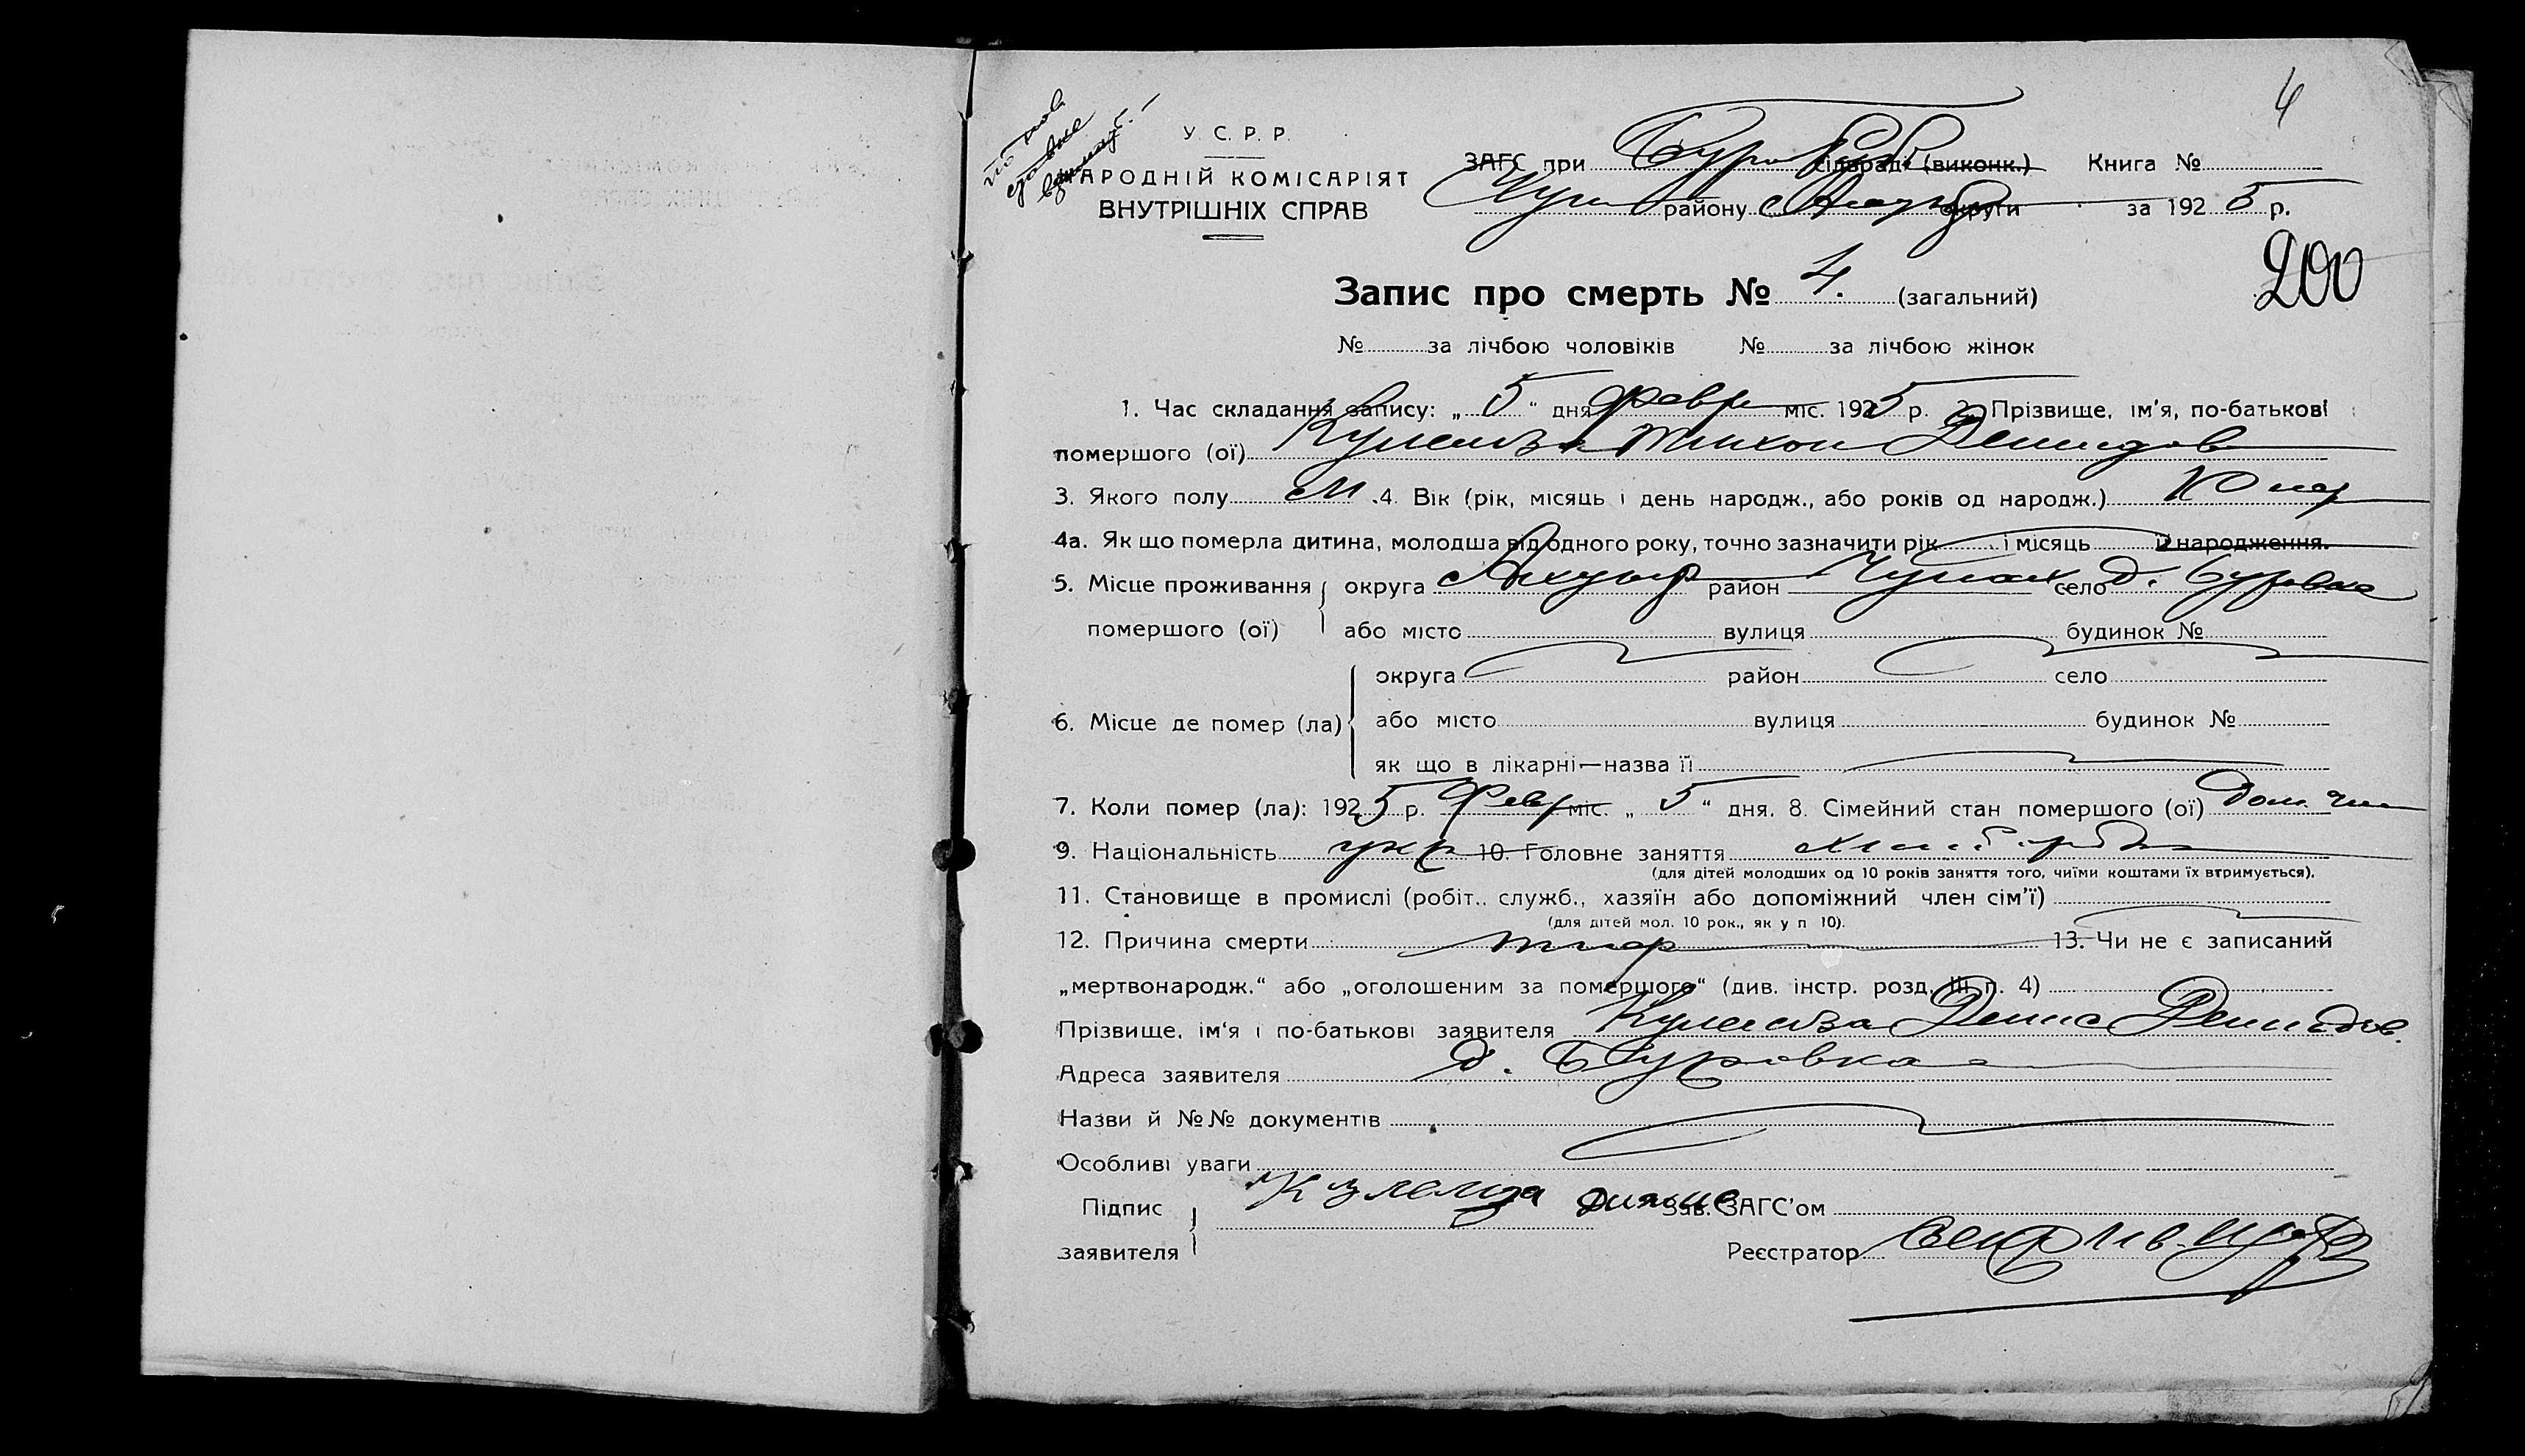 4
У. С. Р. Р.
НАРОДНІЙ КОМІСАРІЯТ
ВНУТРІШНІХ СПРАВ
ЗАГС при сільраді (виконк.) Книга №
району округи за 192 5 р.
200
Запис про смерть № 4. (загальний)
№ за лічбою чоловіків № за лічбою жінок
1. Час складання запису: „ 5 “ дня Февр міс. 192 5 р. 2. Прізвище, ім'я, по-батькові
помершого (ої) Тихон Демидов
3. Якого полу М .4. Вік (рік, місяць і день народж., або років од народж.)
4а. Як що померла дитина, молодша від одного року, точно зазначити рік і місяць її народження.
5. Місце проживання округа Ахтыр район Чупах село д. Буровка
помершого (ої) або місто вулиця будинок №
округа район село
6. Місце де помер (ла) або місто вулиця будинок №
як що в лікарні—назва її
7. Коли помер (ла): 192 5 р. Февр міс. „ 5 “ дня. 8. Сімейний стан помершого (ої)
9. Національність укр 10. Головне заняття
(для дітей молодших од 10 років заняття того, чиїми коштами їх втримується).
11. Становище в промислі (робіт., служб., хазяїн або допоміжний член сім'ї)
(для дітей мол. 10 рок., як у п 10).
12. Причина смерти 13. Чи не є записаний
„мертвонародж.“ або „оголошеним за помершого“ (див. інстр. розд. III п. 4)
Прізвище, ім'я і по-батькові заявителя Денис Демидов.
Адреса заявителя д. Буровка
Назви й №№ документів
Особливі уваги
Підпис Зав. ЗАГС'ом
заявителя Реєстратор